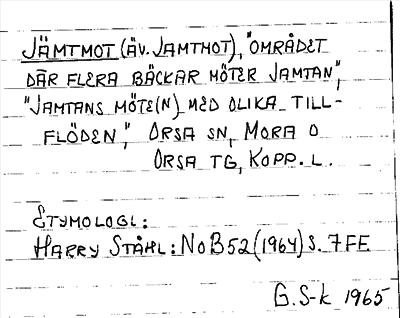 JÄMTMOT (ÄV. JAMTMOT), "OMRÅDET
DÄR FLERA BÄCKAR MÖTER JAMTAN",
"JAMTANS MÖTE(N) MED OLIKA TILL-
FLÖDEN", ORSA SN, MORA O
ORSA TG, KOPP. L.
ETYMOLOGI:
HARRY STÅHL: NoB 52 (1964) S. 7 FF
G. S-k 1965